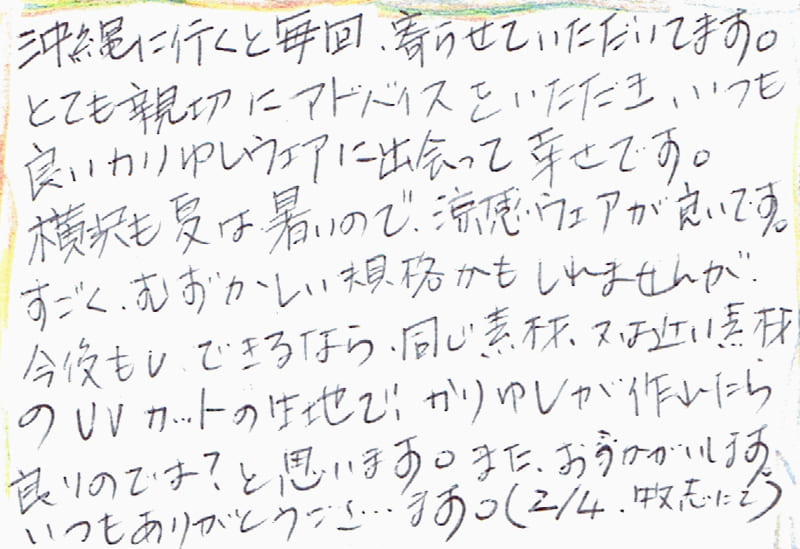 沖縄に行くと毎回、寄らせていただいてます。
とても親切にアドバイスをいただき、いつも
良いかりゆしウェアに出会って幸せです。
横浜も夏は暑いので、涼感ウェアが良いです。
すごく、むずかしい規格かもしれませんが、
今後もし、できるなら、同じ素材、又は近い素材
のUVカットの生地で、かりゆしが作れたら
良いのでは?と思います。また、おうかがいします。
いつもありがとうござ…ます。(2/4.